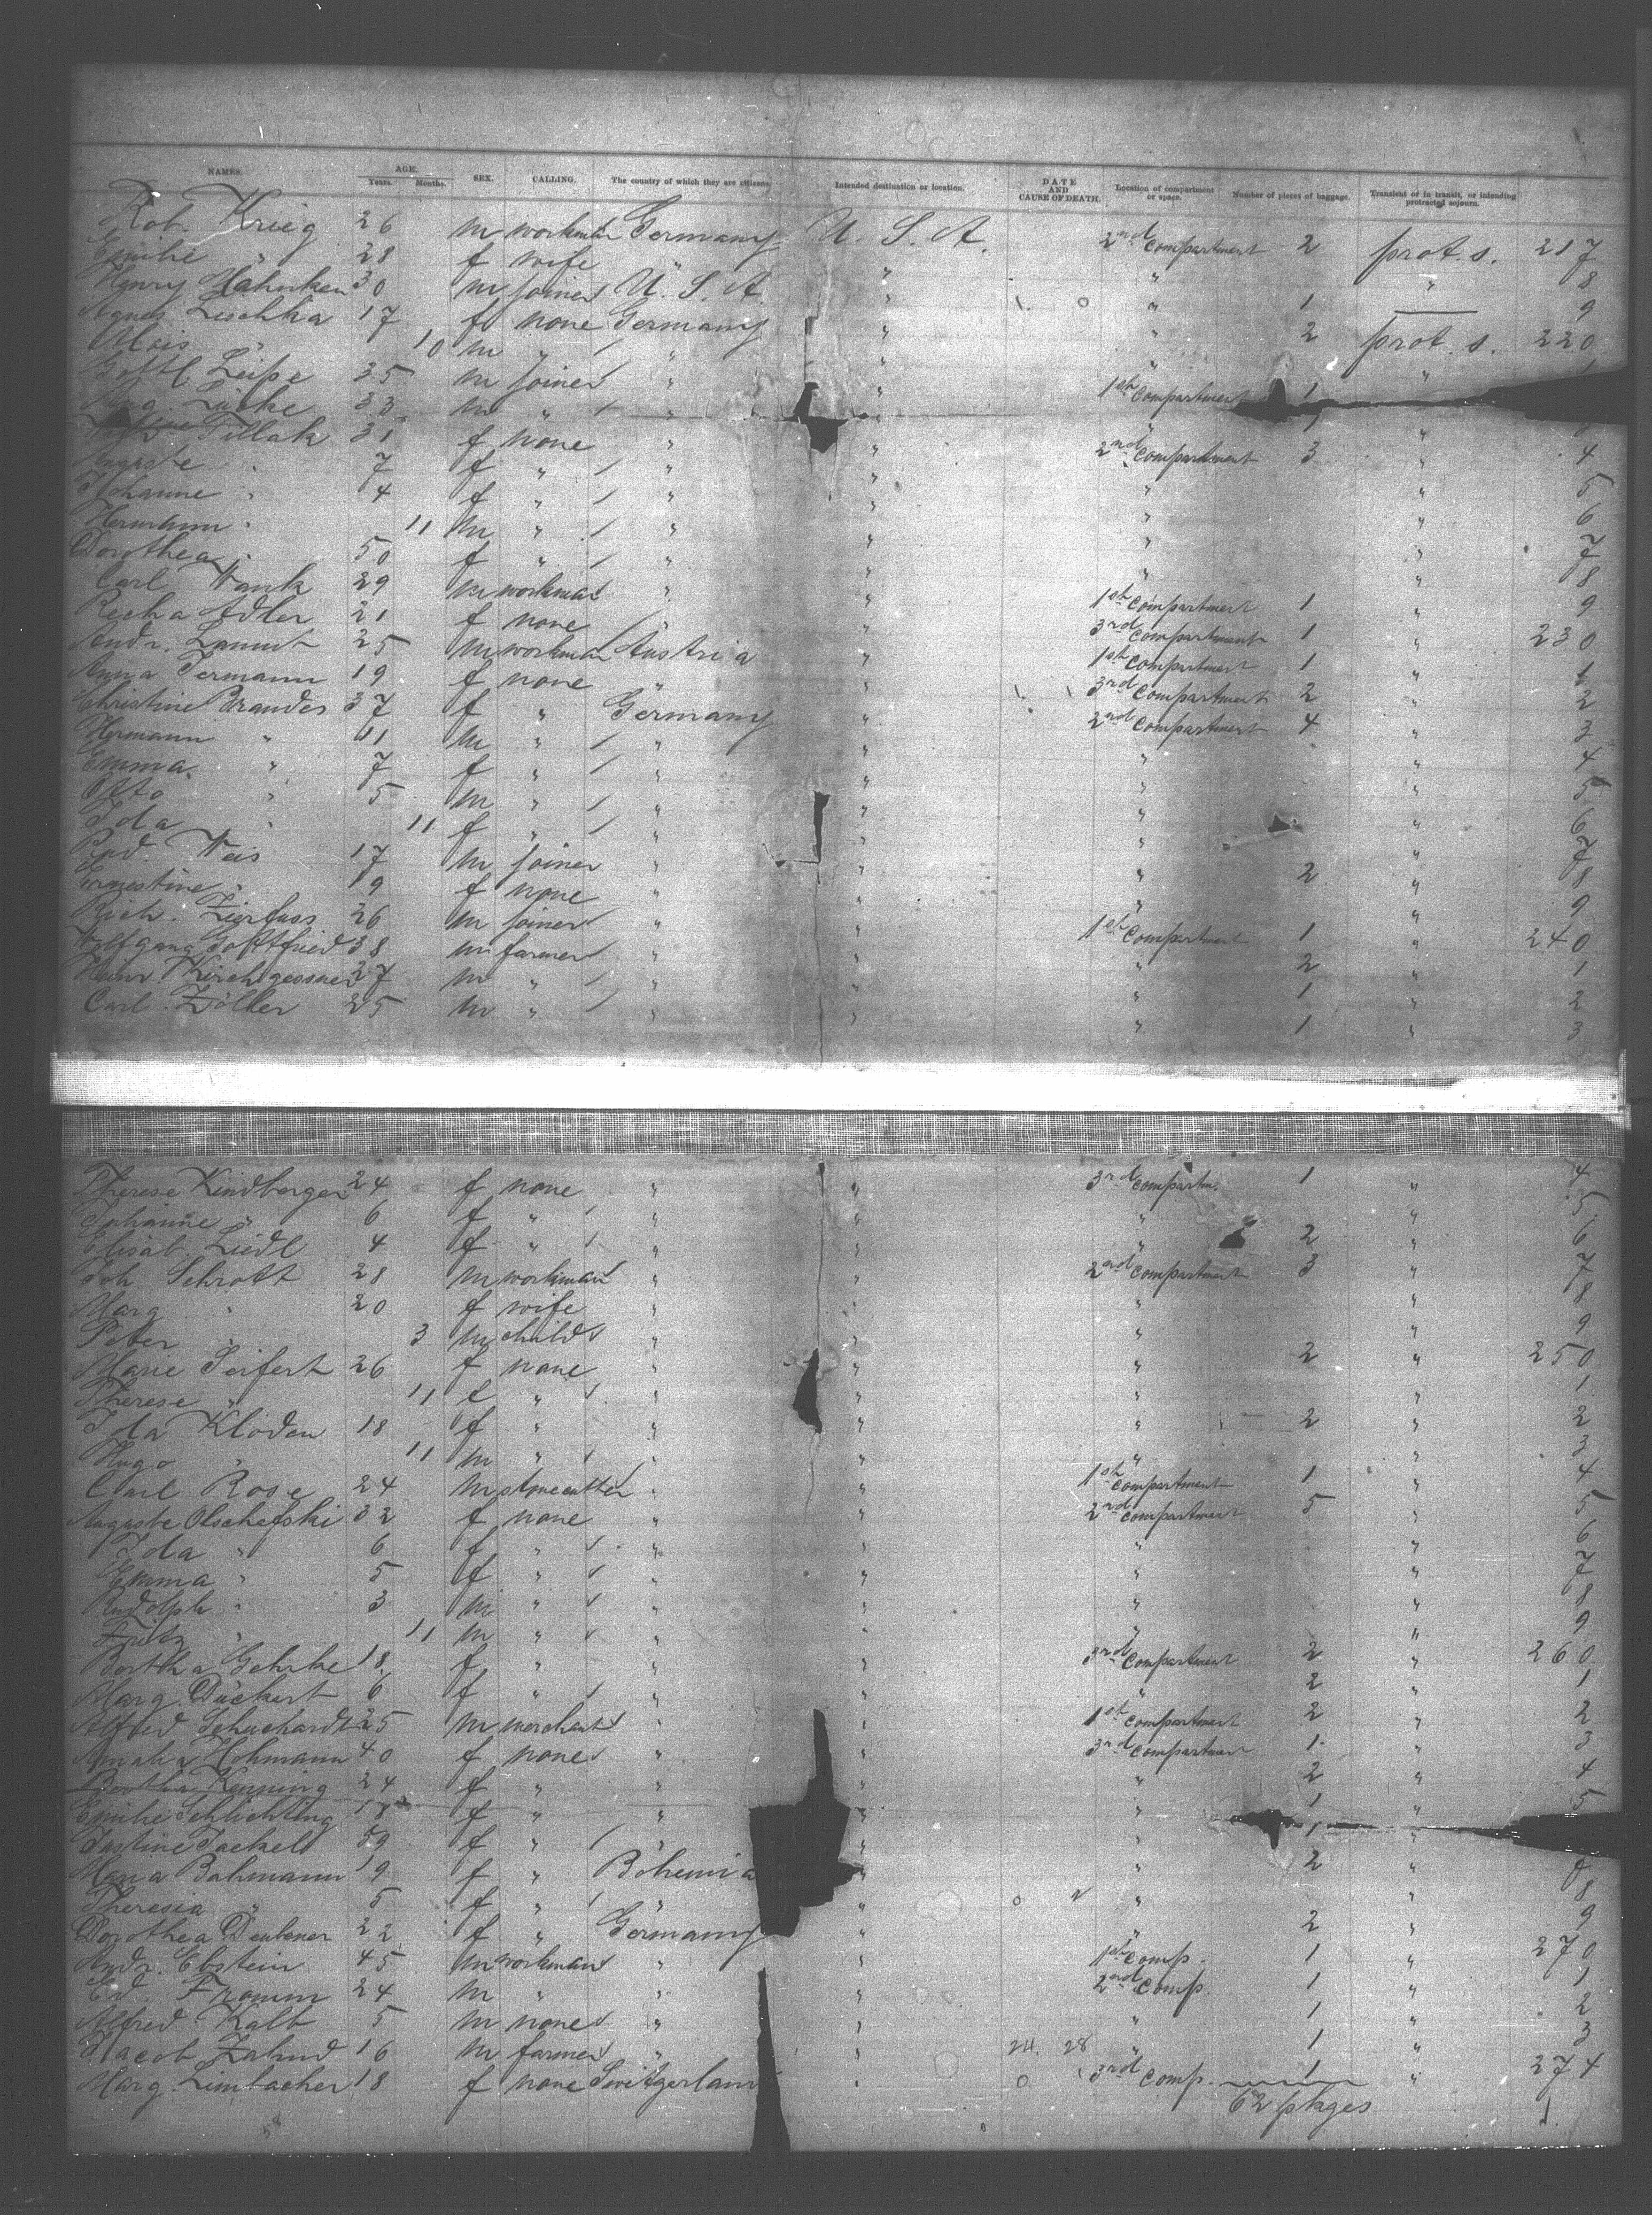 NAMES. AGE. Years. Months. SEX. CALLING. The country of which they are citizens. Intended destination or location. DATE AND CAUSE OF DEATH. Location of compartment or space. Number of pieces of baggage. Transient or in transit, or intending protracted sojourn.
Rob. Krieg 26 m workman Germany U. S. A. 2nd Compartment 2 prot. s. 217
Emilie " 28 f wife " " " " 8
Henry Mahnken 30 m joiner U. S. A. " " 1 9
Agnes Leschka 17 f none Germany " " 2 prot. s. 220
Alois " 10 m " " " " "
Gottl. Leipe 35 m joiner " " 1st Compartment 1
Aug. Lücke 33 m " " " " 1 "
Tillak 31 f none " " 2nd Compartment 3 " 4
Auguste " 7 f " " " " " 5
Johanne " 4 f " " " " " 6
Hermann " 11 m " " " " " 7
Dorothea " 50 f " " " " " 8
Carl Wank 29 m workman " " 1st Compartment 1 " 9
Recha Adler 21 f none " " 3rd Compartment 1 " 230
Andr. 25 m workman Austria " 1st Compartment 1 " 1
Anna Termann 19 f none " " 3rd Compartment 2 " 2
Christine Brandes 37 f " Germany " 2nd Compartment 4 " 3
Hermann " 11 m " " " " " 4
Emma " 7 f " " " " " 5
Otto " 5 m " " " " " 6
Ida " 11 f " " " " " 7
Rud. Weis 17 m joiner " " " 2 " 8
Ernestine " 19 f none " " " " 9
Rich. Zierfuss 26 m joiner " " 1st Compartment 1 " 240
Wolfgang Gottfried 38 m farmer " " " 2 " 1
Heinr. Kirchgessner 27 m " " " " 1 " 2
Carl Zöller 25 m " " " " 1 " 3
Therese Kindberger 24 f none " " 3rd Compartm. 1 " 4
Johanne " 6 f " " " " " 5
Elisab. Liedl 4 f " " " " 2 " 6
Joh. Schrott 28 m workman " " 2nd Compartment 3 " 7
Marg. " 20 f wife " " " " 8
Peter " 3 m child " " " " 9
Marie Seifert 26 f none " " " 2 " 250
Therese " 11 f " " " " " 1
Ida Kloden 18 f " " " " 2 " 2
Hugo " 11 m " " " " " 3
Carl Rose 24 m stonecutter " " 1st Compartment 1 " 4
Auguste Olschefski 32 f none " " 2nd Compartment 5 " 5
Ida " 6 f " " " " " 6
Emma " 5 f " " " " " 7
Rudolph " 3 m " " " " " 8
Fritz " 11 m " " " " " 9
Bertha Gehrke 18 f " " " 3rd Compartment 2 " 260
Marg. Dückert 6 f " " " " 2 " 1
Alfred Schuchardt 25 m merchant " " 1st Compartment 2 " 2
Amalia Hohmann 40 f none " " 3rd Compartment 1 " 3
Bertha Kenning 24 f " " " " 2 " 4
Emilie Schlichting f " " " 1 " 5
Justine Jackel 59 f " " " 1 "
Maria Bahmann 19 f " Bohemia " " 2 "
Theresia " 5 f " " " " " 8
Dorothea Deubener 22 f " Germany " " 2 " 9
Andr. Ebstein 45 m workman " " 1st Comp. 1 " 270
Ed. Fromm 24 m " " " 2nd Comp. 1 " 1
Alfred Kalb 5 m none " " " 1 " 2
Jacob Zahnd 16 m farmer " " 24. 28 " 1 " 3
Marg. Limbacher 18 f none Switzerland " 3rd Comp. 1 " 274
62 pkges